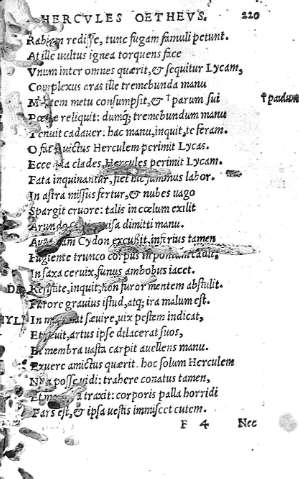 HERCVLES OETHEVS. 220
Rabiem redisse, tunc fugam famuli petunt.
At ille vultus ignea torquens face
Vnum inter omnes quærit, & sequitur Lycam,
Complexus aras ille tremebunda manu
Mortem metu consumpsit, & † parum sui † pœdum
Pœnæ reliquit: dumq; tremebundum manu
Tenuit cadauer: hac manu, inquit, te feram.
O fata uictus Herculem perimit Lycas.
Ecce alia clades, Hercules perimit Lycam.
Fata inquinantur, fiet hic summus labor.
In astra missus fertur, & nubes uago
Spargit cruore: talis in cœlum exilit
Arundo iussa dimitti manu.
Cydon excussit, inferius tamen
Fugiente trunco corpus
In saxa ceruix, funus ambobus iacet.
Resistite, inquit, non furor mentem abstulit.
Furore grauius istud, atq; ira malum est.
In me iuuat sæuire, uix pestem indicat,
Et sæuit, artus ipse dilacerat suos,
Et membra uasta carpit auellens manu.
Exuere amictus quærit. hoc solum Herculem
Non posse uidi: trahere conatus tamen,
Et traxit: corporis palla horridi
Pars est, & ipsa uestis immiscet cutem.
F 4 Nec